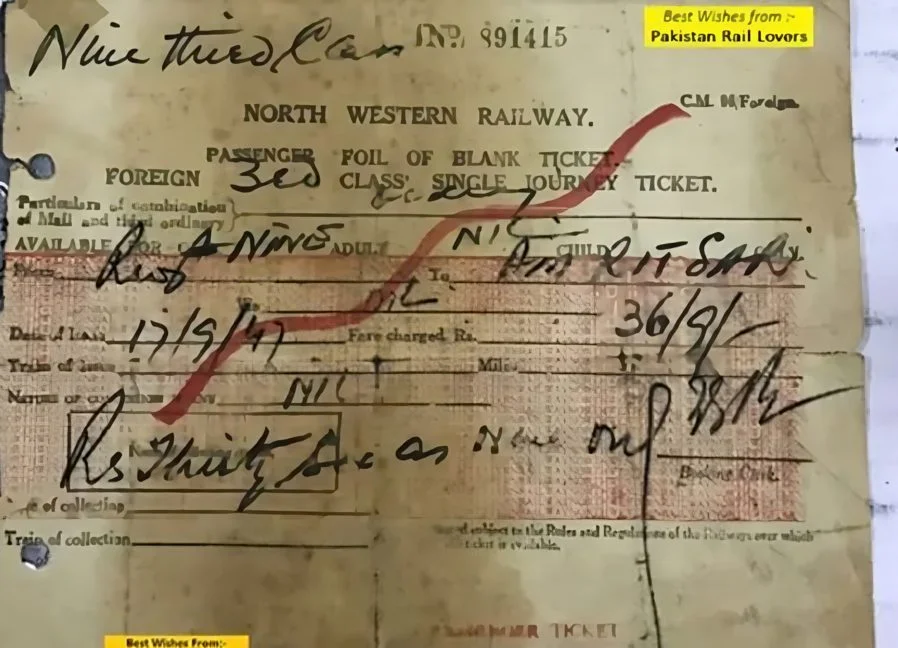 Nine third Class
INP. 891415
Best Wishes from :-
Pakistan Rail Lovors
C.M. M/Foreign.
NORTH WESTERN RAILWAY.
PASSENGER FOIL OF BLANK TICKET.
FOREIGN 3rd CLASS' SINGLE JOURNEY TICKET.
Particulars of combination
of Mail and third ordinary
AVAILABLE FOR NINE ADULT NIL CHILD ONLY.
From To AMRITSAR.
Via Nil
Date of Issue 17/9/47 Fare charged Rs. 36/9/-
Train of Issue Miles
NATURE OF Nil
Rs Thirty Six as Nine only
Booking Clerk.
of collection
Train of collection
subject to the Rules and Regulations of the Railways over which
ticket is available.
PASSENGER TICKET
Best Wishes From:-